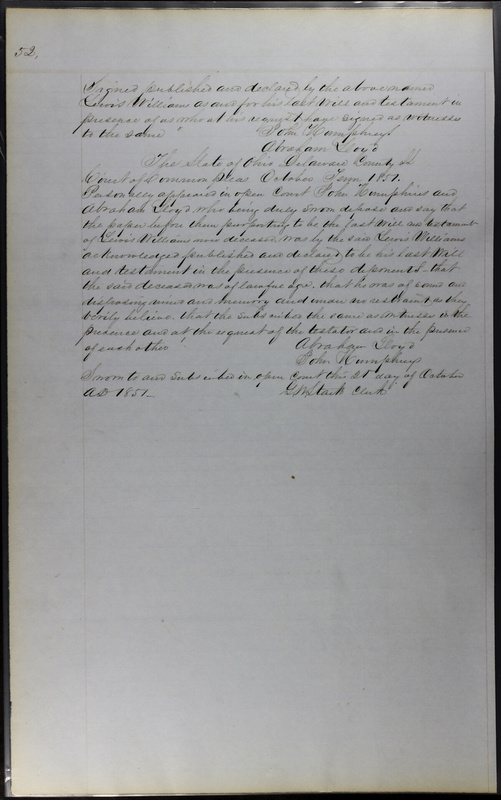 52.
Signed published and declared by the above named
Lewis Williams as and for his last Will and testament in
presence of us who at his request have signed as witnesses
to the same John Humphreys
Abraham Loyd
The State of Ohio Delaware County SS
Court of Common Pleas October Term 1851.
Personally appeared in open Court John Humphries and
Abraham Lloyd who being duly sworn depose and say that
the paper before them purporting to be the last Will and testament
of Lewis Williams now deceased was by the said Lewis Williams
acknowledged published and declared to be his last Will
and testament in the presence of these deponents that
the said deceased was of lawful age. that he was of sound and
disposing mind and memory and under no restraint as they
verily believe. that they subscribed the same as witnesses in the
presence and at the request of the testator and in the presence
of each other Abraham Loyd
John Humphreys
Sworn to and Subscribed in open Court this 21st day of October
AD 1851 Stark Clerk